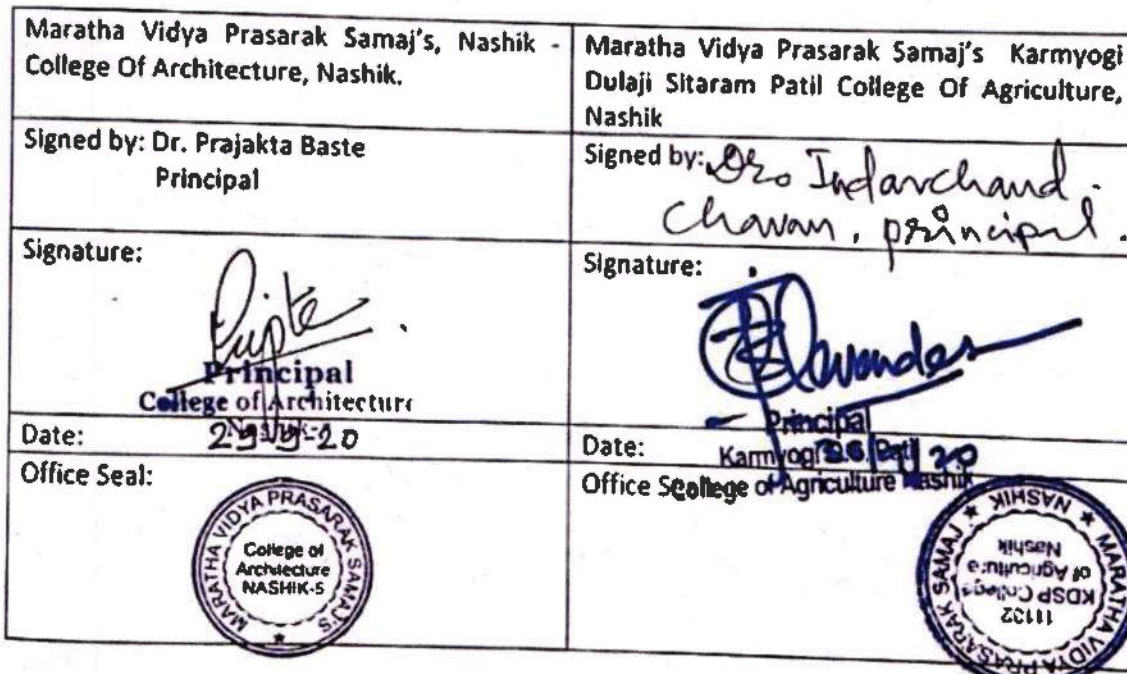 Maratha Vidya Prasarak Samaj's, Nashik -
College Of Architecture, Nashik.
Maratha Vidya Prasarak Samaj's Karmyogi
Dulaji Sitaram Patil College Of Agriculture,
Nashik
Signed by: Dr. Prajakta Baste
Principal
Signed by: Dr. Indarchand
Chavan, principal.
Signature:
Principal
College of Architecture
Signature:
Principal
Karmyogi
College of Agriculture Nashik
Date: 29-9-20
Date:
Office Seal:
MARATHA VIDYA PRASARAK SAMAJ'S
College of
Architecture
NASHIK-5
Office Seal:
MARATHA VIDYA PRASARAK SAMAJ
NASHIK
11132
KDSP College
of Agriculture
Nashik